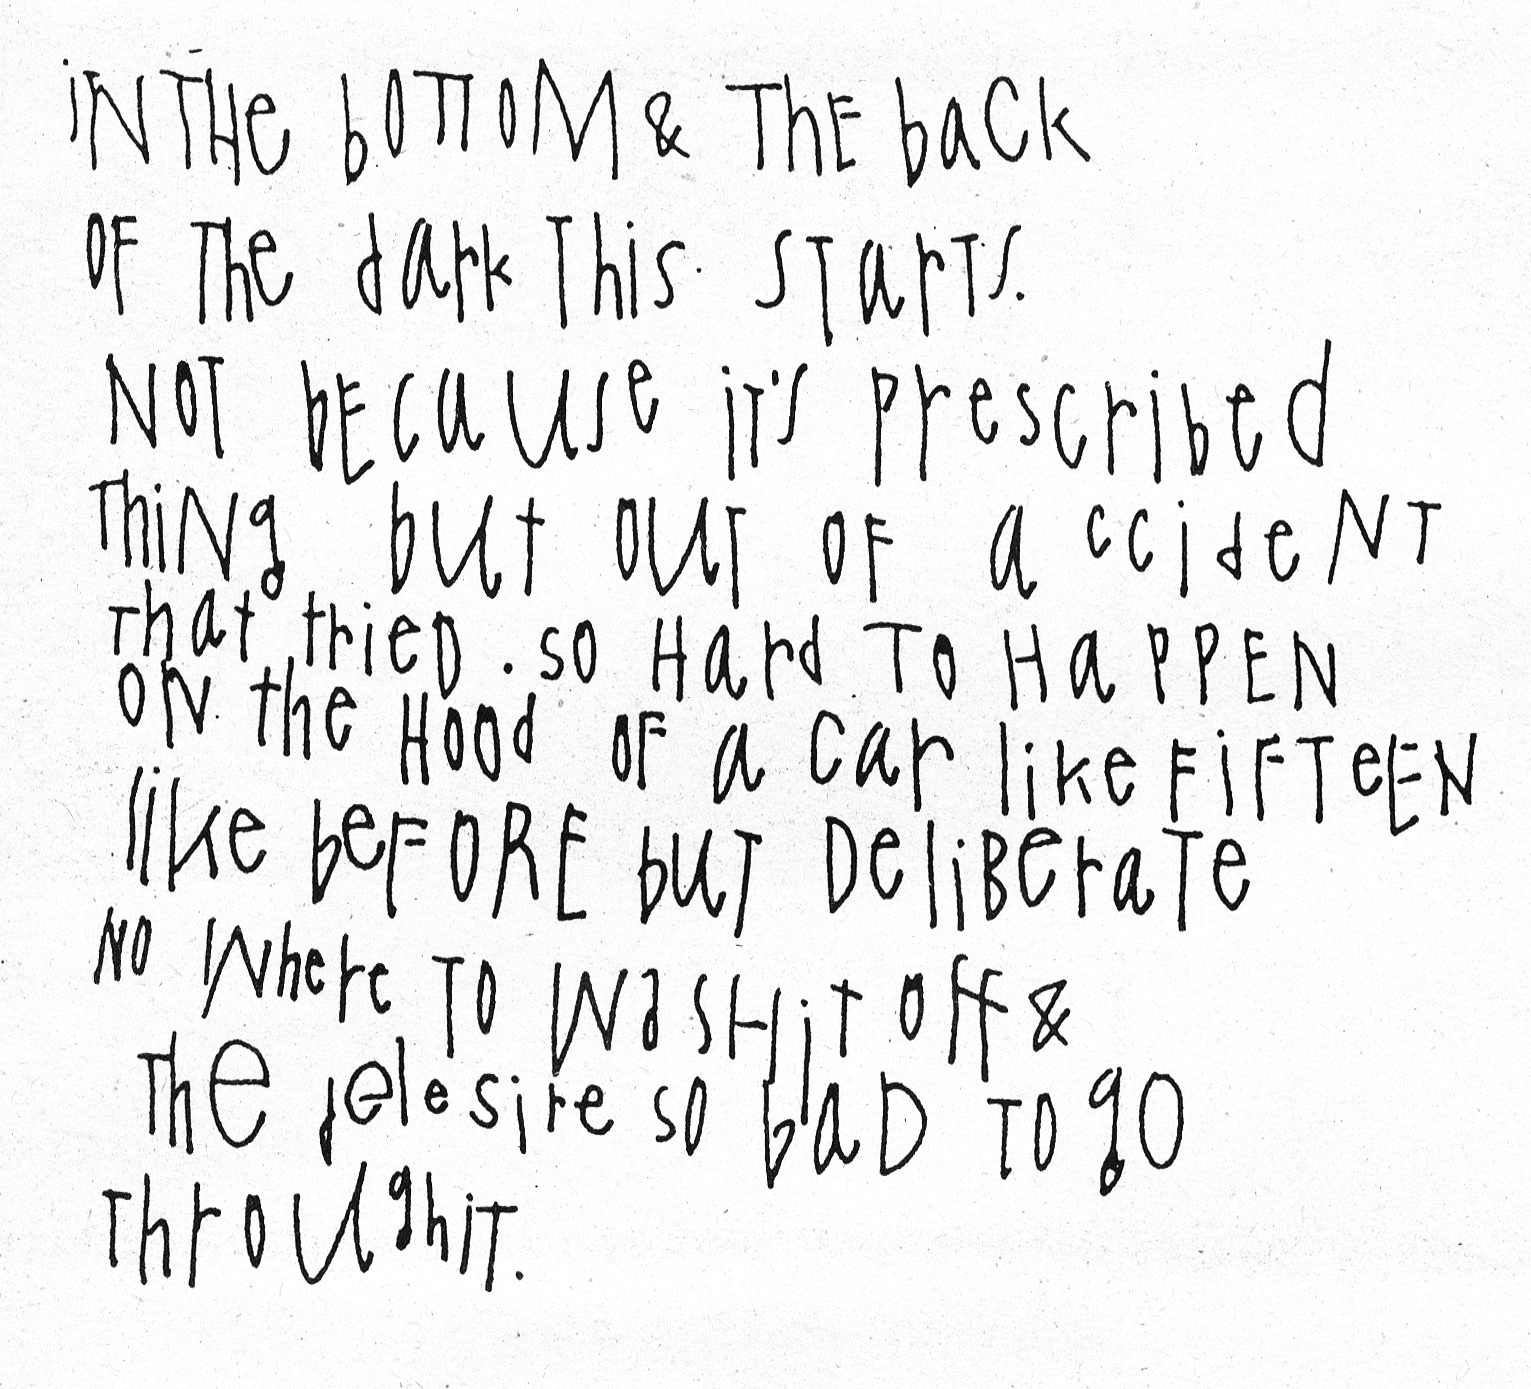 iNTHe bOTTOM & ThE baCk
OF The dark This. STarTs.
NOT bECaUse iT's Prescribed
ThiNg but OUT OF a ccideNT
That trieD. so Hard TO HaPPEN
ON. the HOOd OF a Car like FiFTeEN
like beFORE bUT DeliBeraTe
NO Where TO WasHit Off &
The delesire so baD TO gO
ThroUghiT.